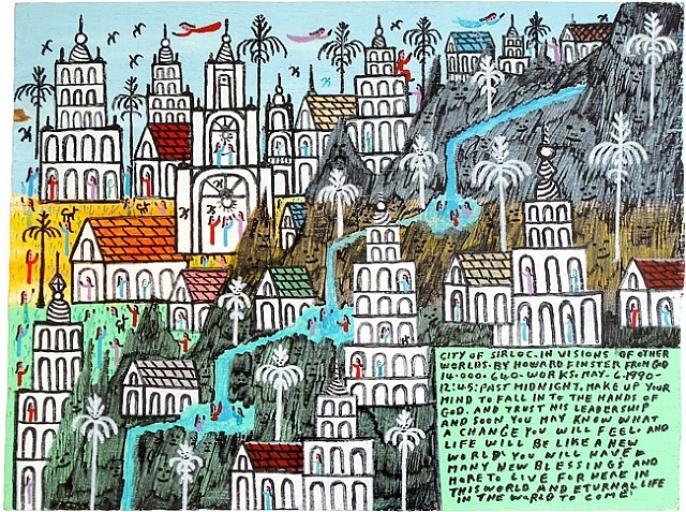 CITY OF SIRLOC. IN VISIONS OF OTHER
WORLDS. BY HOWARD FINSTER FROM GOD
14.000.640.WORKS. MAY.6.1990.
12:45: PAST MIDNIGHT. MAKE UP YOUR
MIND TO FALL IN TO THE HANDS OF
GOD. AND TRUST HIS LEADERSHIP
AND SOON YOU MAY KNOW WHAT
A CHANGE YOU WILL FEEL. AND
LIFE WILL BE LIKE A NEW
WORLD. YOU WILL HAVE
MANY NEW BLESSINGS AND
MORE TO LIVE FOR HERE IN
THIS WORLD AND ETURNAL LIFE
IN THE WORLD TO COME.